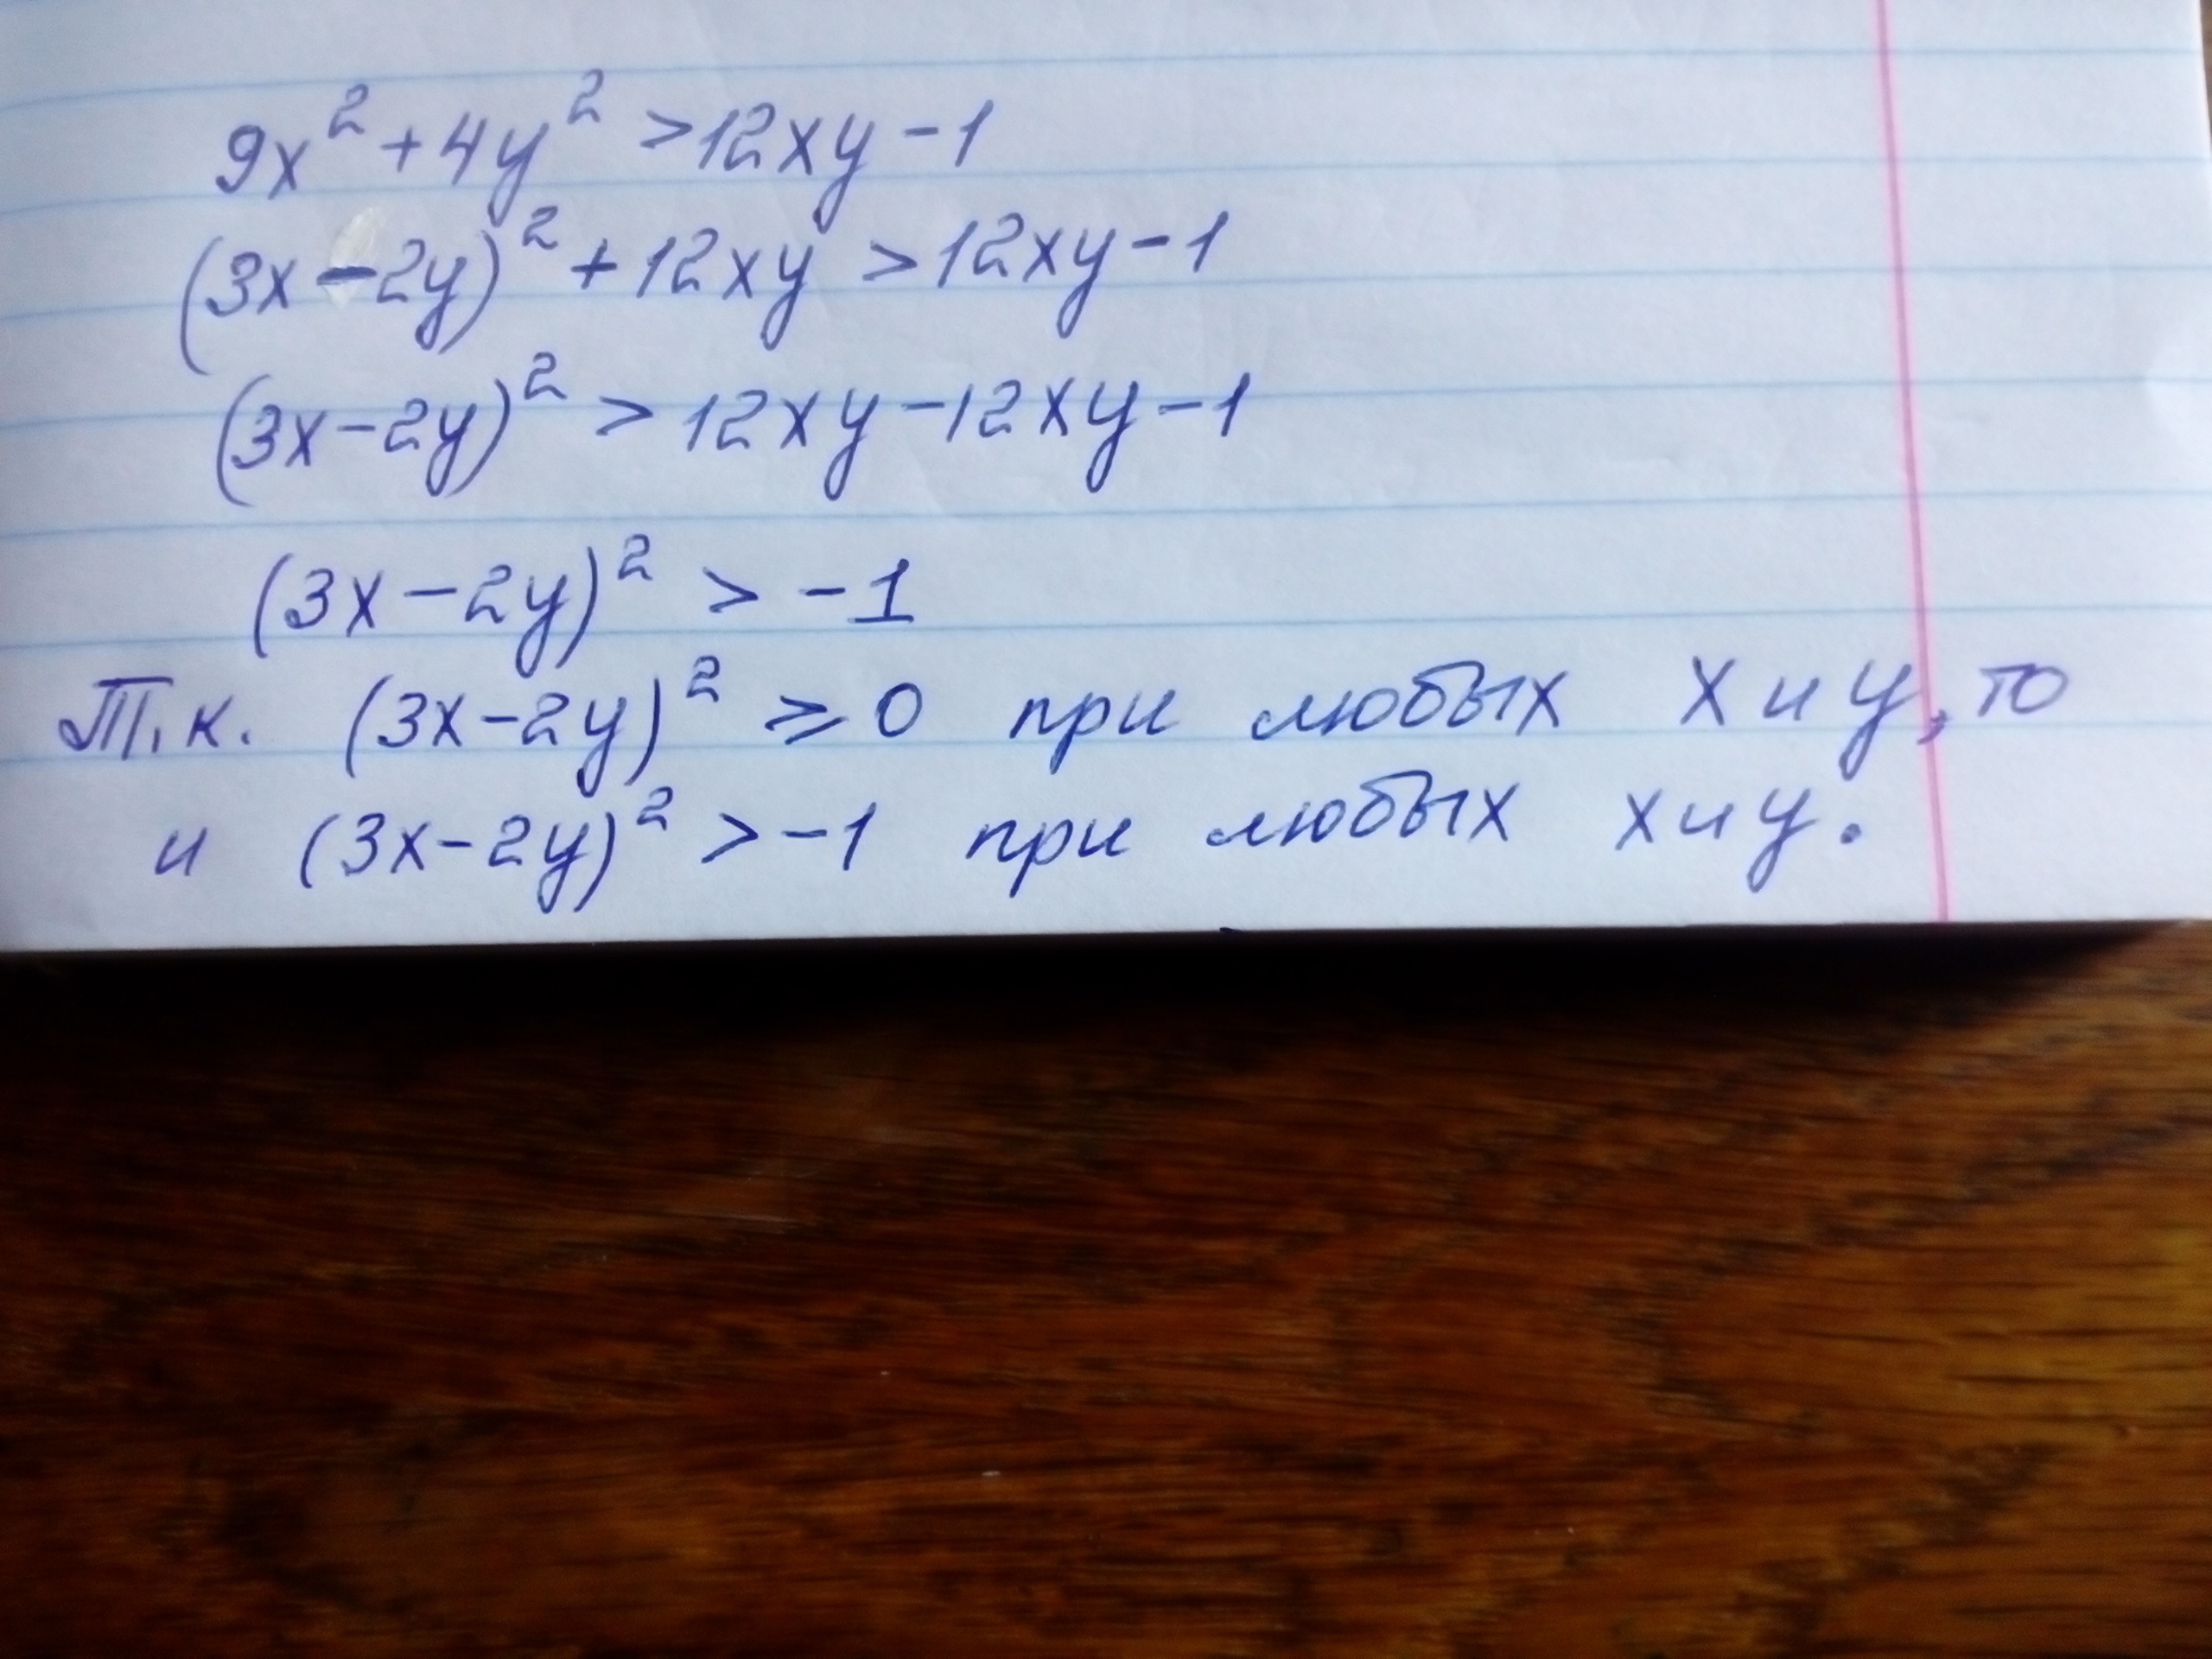 9x² + 4y² > 12xy - 1
(3x - 2y)² + 12xy > 12xy - 1
(3x - 2y)² > 12xy - 12xy - 1
(3x - 2y)² > -1
Т.к. (3x - 2y)² ⩾ 0 при любых x и y, то
и (3x - 2y)² > -1 при любых x и y.